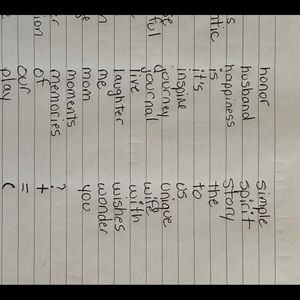 honor
husband
happiness
is
it's
inspire
journey
journal
live
laughter
me
mom
moments
memories
of
our
play
simple
spirit
story
the
to
us
unique
wife
with
wishes
wonder
you
?
+
=
(